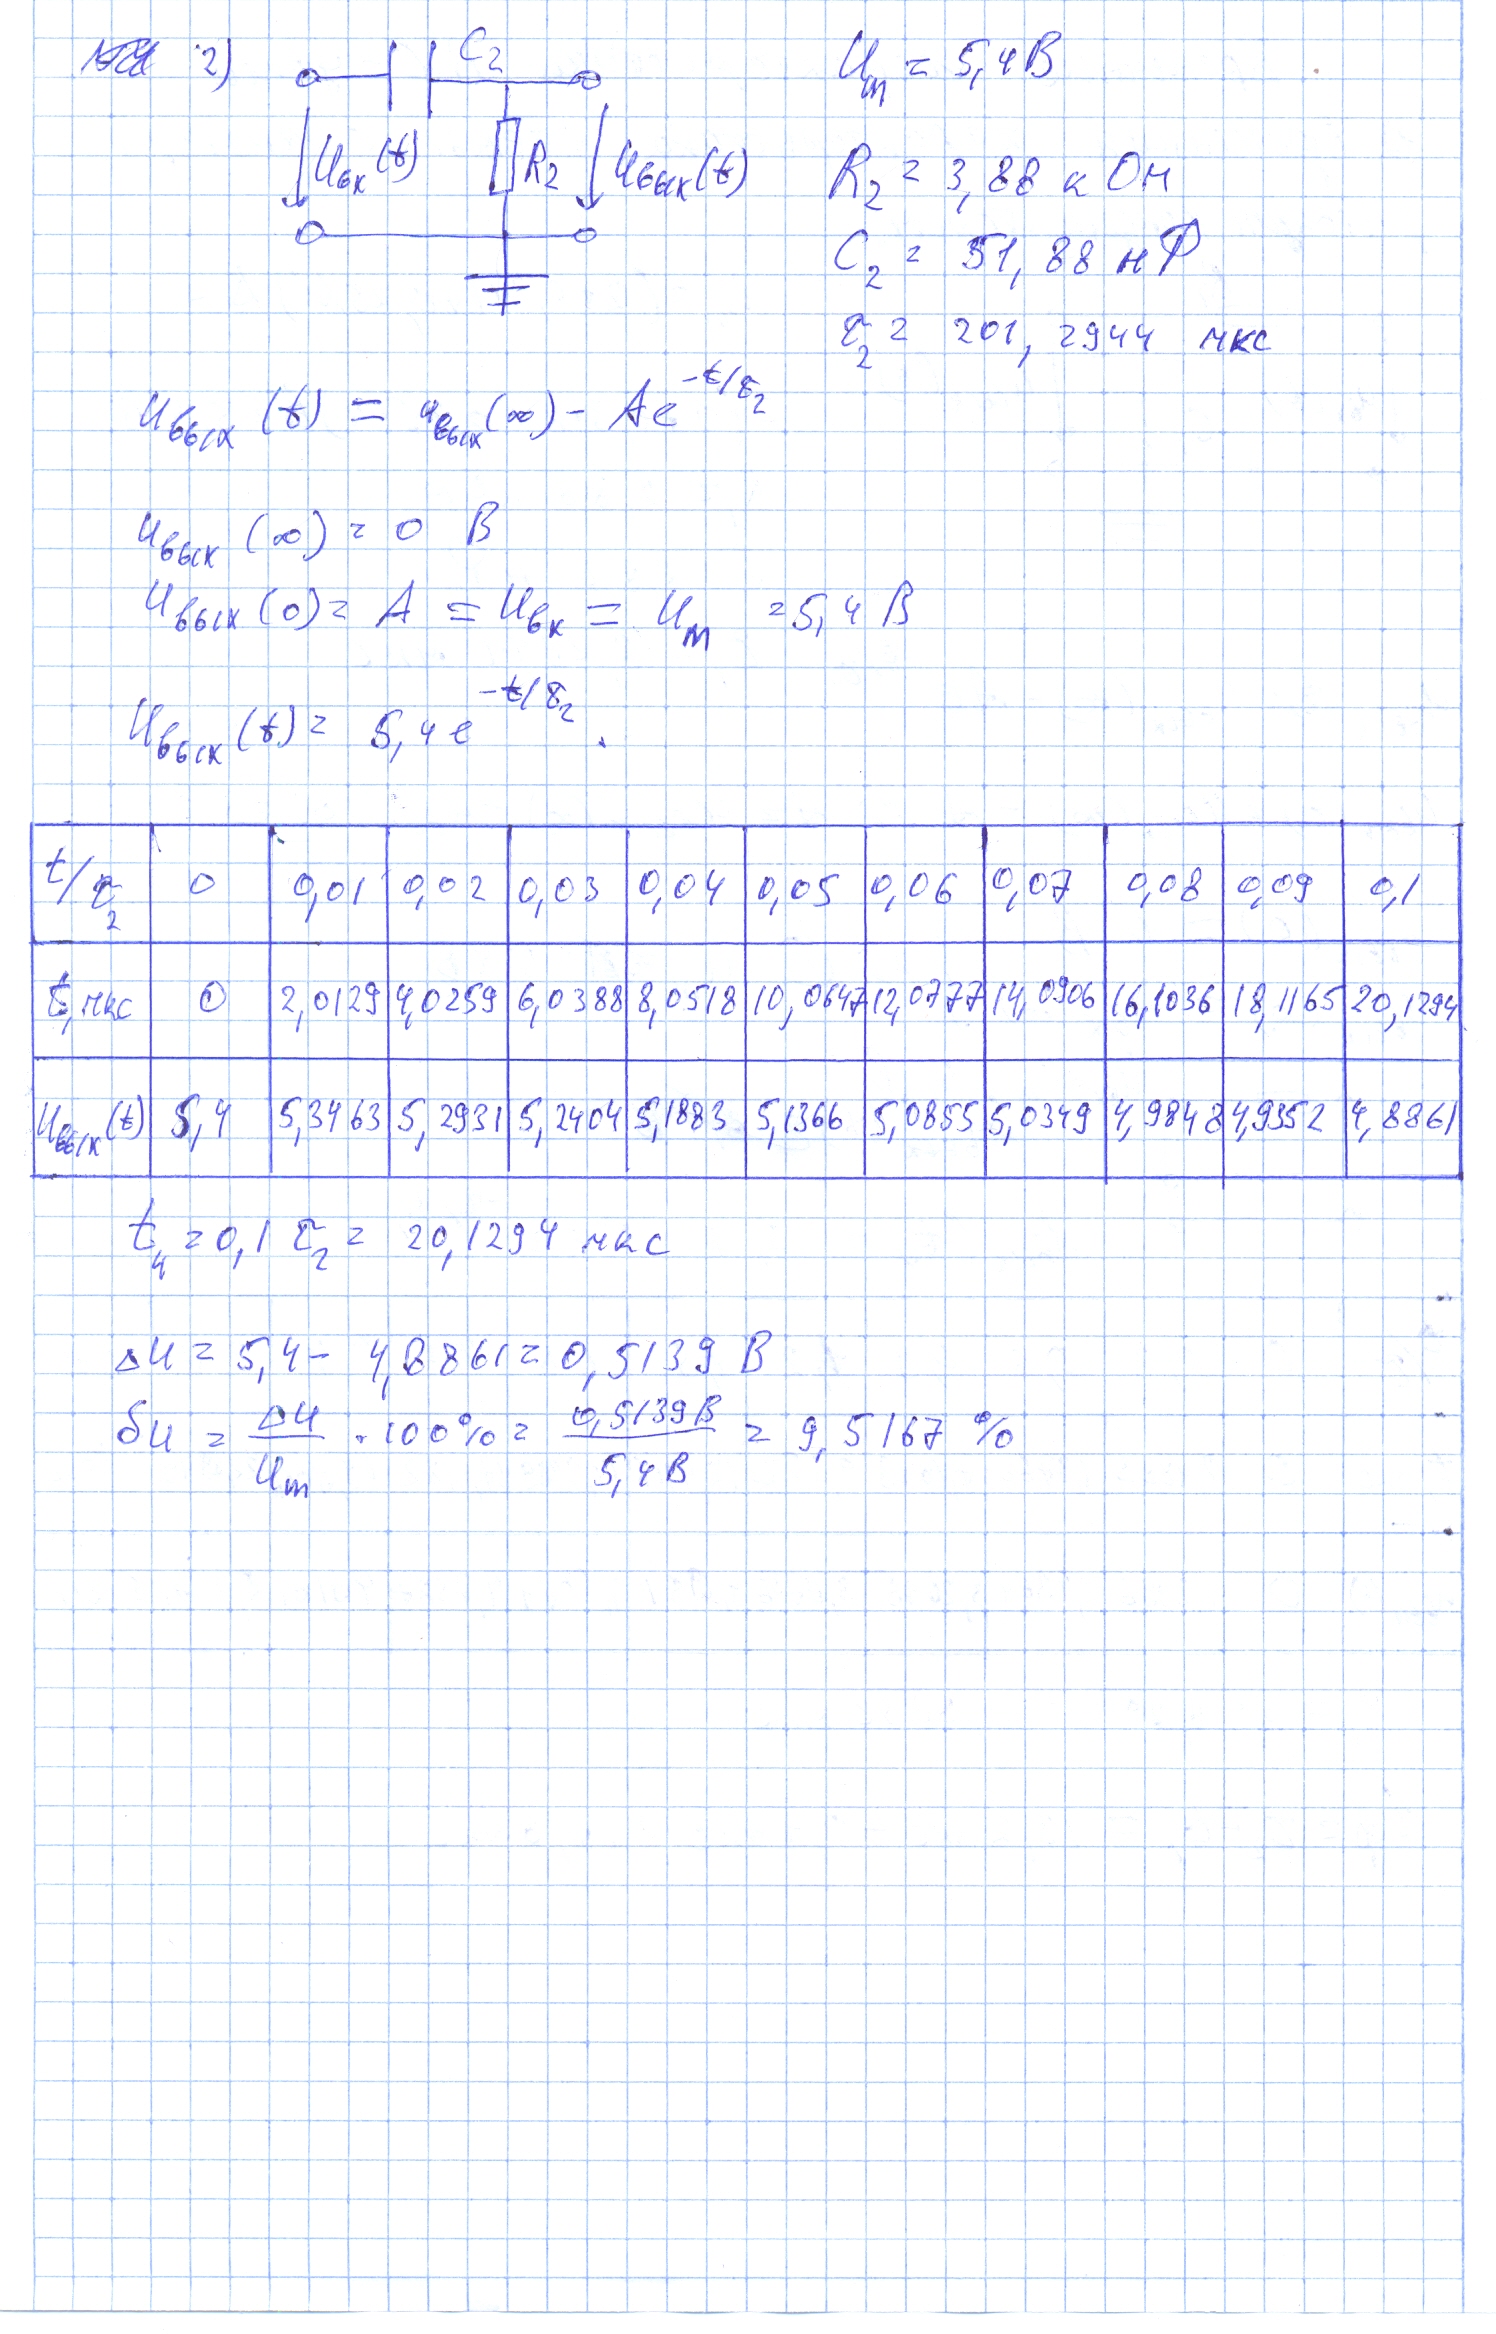 2)
C₂
Uвх(t)
R₂
Uвых(t)
Um = 5,4 В
R₂ = 3,88 кОм
C₂ = 51,88 нФ
τ₂ = 201,2944 мкс
Uвых(t) = uвых(∞) - Ae^(-t/τ₂)
Uвых(∞) = 0 В
Uвых(0) = A = Uвх = Um = 5,4 В
Uвых(t) = 5,4e^(-t/τ₂).
t/τ₂ 0 0,01 0,02 0,03 0,04 0,05 0,06 0,07 0,08 0,09 0,1
t, мкс 0 2,0129 4,0259 6,0388 8,0518 10,0647 12,0777 14,0906 16,1036 18,1165 20,1294
Uвых(t) 5,4 5,3463 5,2931 5,2404 5,1883 5,1366 5,0855 5,0349 4,9848 4,9352 4,8861
tи = 0,1 τ₂ = 20,1294 мкс
ΔU = 5,4 - 4,8861 = 0,5139 В
δu = ΔU/Um · 100% = 0,5139 В/5,4 В = 9,5167 %